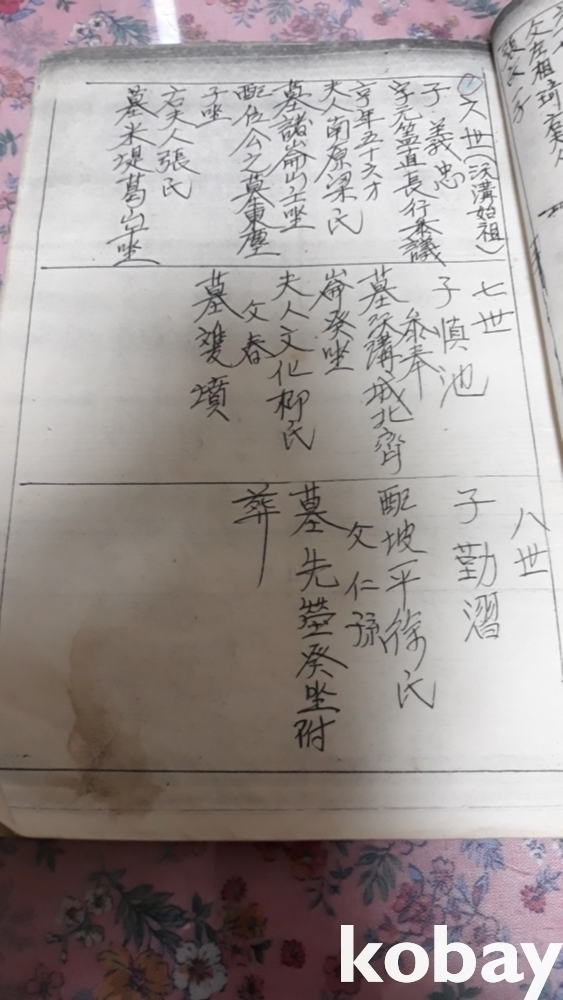 六世(沃溝始祖)
子 義忠
字元益直長行參議
享年五十六才
夫人南原梁氏
墓諸崙山壬坐
配位公之墓東麓
子坐
右夫人張氏
墓米堤葛山坐
七世
子愼池
參奉
墓沃溝城北齊
崙癸坐
夫人文化柳氏
父春
墓雙墳
八世
子勤溜
配坡平徐氏
父仁孫
墓先塋癸坐附
葬
kobay